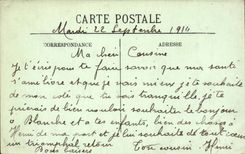 CARTE POSTALE
Mardi 22 Septembre 1914
CORRESPONDANCE ADRESSE
Ma chère Cousine
Je t'écris pour te faire savoir que ma santé
s'améliore et que je vais mieux je te souhaite
de mon côté que tu sois tranquille. Je te
prierais de bien vouloir souhaiter le bonjour
à Blanche et à tes enfants, bien des choses à
Henri de ma part et je lui souhaite de tout cœur
un triomphal retour.
Ton cousin Henri
Bons baisers